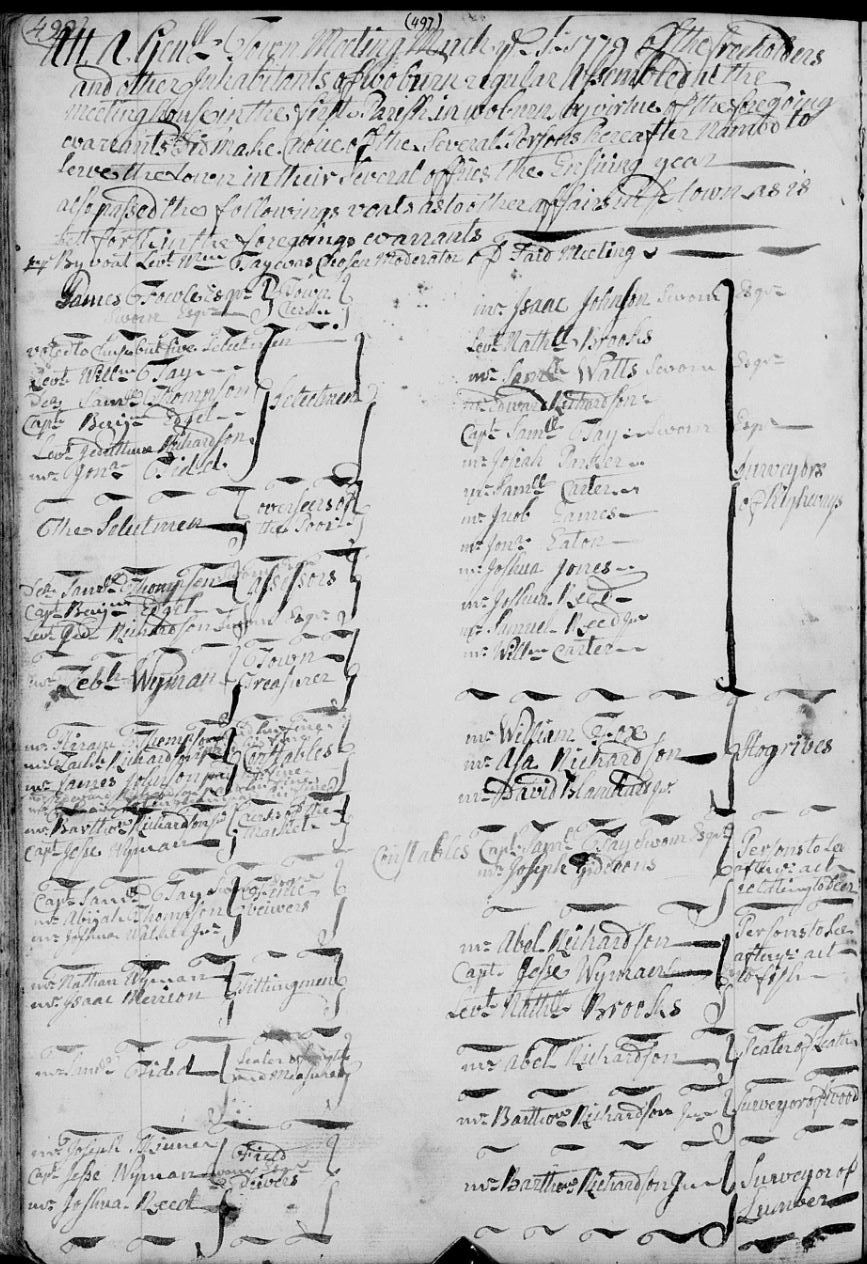 (497)
Att A Genll Town Meeting March ye 1st 1779 of the freeholders
and other Inhabitants of woburn regular Assembled at the
meeting house in the first Parish in woburn by virtue of the foregoing
warrants Did make Choice of the Several Persons hereafter Named to
Serve the Town in their Several offices the Ensuing year
also passed the followings voats as to other affairs of sd town as is
Sett forth in the foregoings warrants
By voat Levt Wm Tay was Chosen Moderator of Said Meeting
James Fowle Esqr Town
Sworn Clerk
voted to Chuse but five Selectmen
Levt Willm Tay
Dea Samll Thompson
Capt Benja Edgel Selectmen
Levt Jedethun Richardson
mr Jona Tidd
The Selectmen overseers of
the Poor
Dea Samll Thompson Assessors
Capt Benja Edgel
Levt Jed Richardson Sworn Esqr
mr Zebn Wyman Town
Treasurer
mr Hiram Thompson
mr Zachh Richardson Constables
mr James Johnson
mr Barthow Richardson Clerks of the
Capt Jesse Wyman Market
Capt Samll Tay Fence
mr Abijah Thompson veiwers
mr Joshua Walker Junr
mr Nathan Wyman Tithingmen
mr Isaac Merrion
mr Samll Tidd Sealer of
and Measures
mr Joseph Skinner Field
Capt Jesse Wyman Drivers
mr Joshua Reed
mr Isaac Johnson Sworn Esqr
Levt Nathll Brooks
mr Samll Watts Sworn Esqr
mr Edward Richardson
Capt Samll Tay Sworn Esqr
mr Josiah Parker Surveyors
mr Samll Carter of Highways
mr Jacob Eames
mr Jona Eaton
mr Joshua Jones
mr Joshua Reed
mr Samuel Reed Jur
mr Willm Carter
mr William Fox
mr Asa Richardson Hogrives
mr David Blanchard Jur
Constables Capt Samll Tay Sworn Esqr Persons to See
mr Joseph Gideons after ye act
relatting to Deer
mr Abel Richardson Persons to See
Capt Jesse Wyman after ye act
Levt Nathll Brooks to fish
mr Abel Richardson Sealer of Leather
mr Barthow Richardson Jur Surveyor of wood
mr Barthow Richardson Jur Surveyor of
Lumber